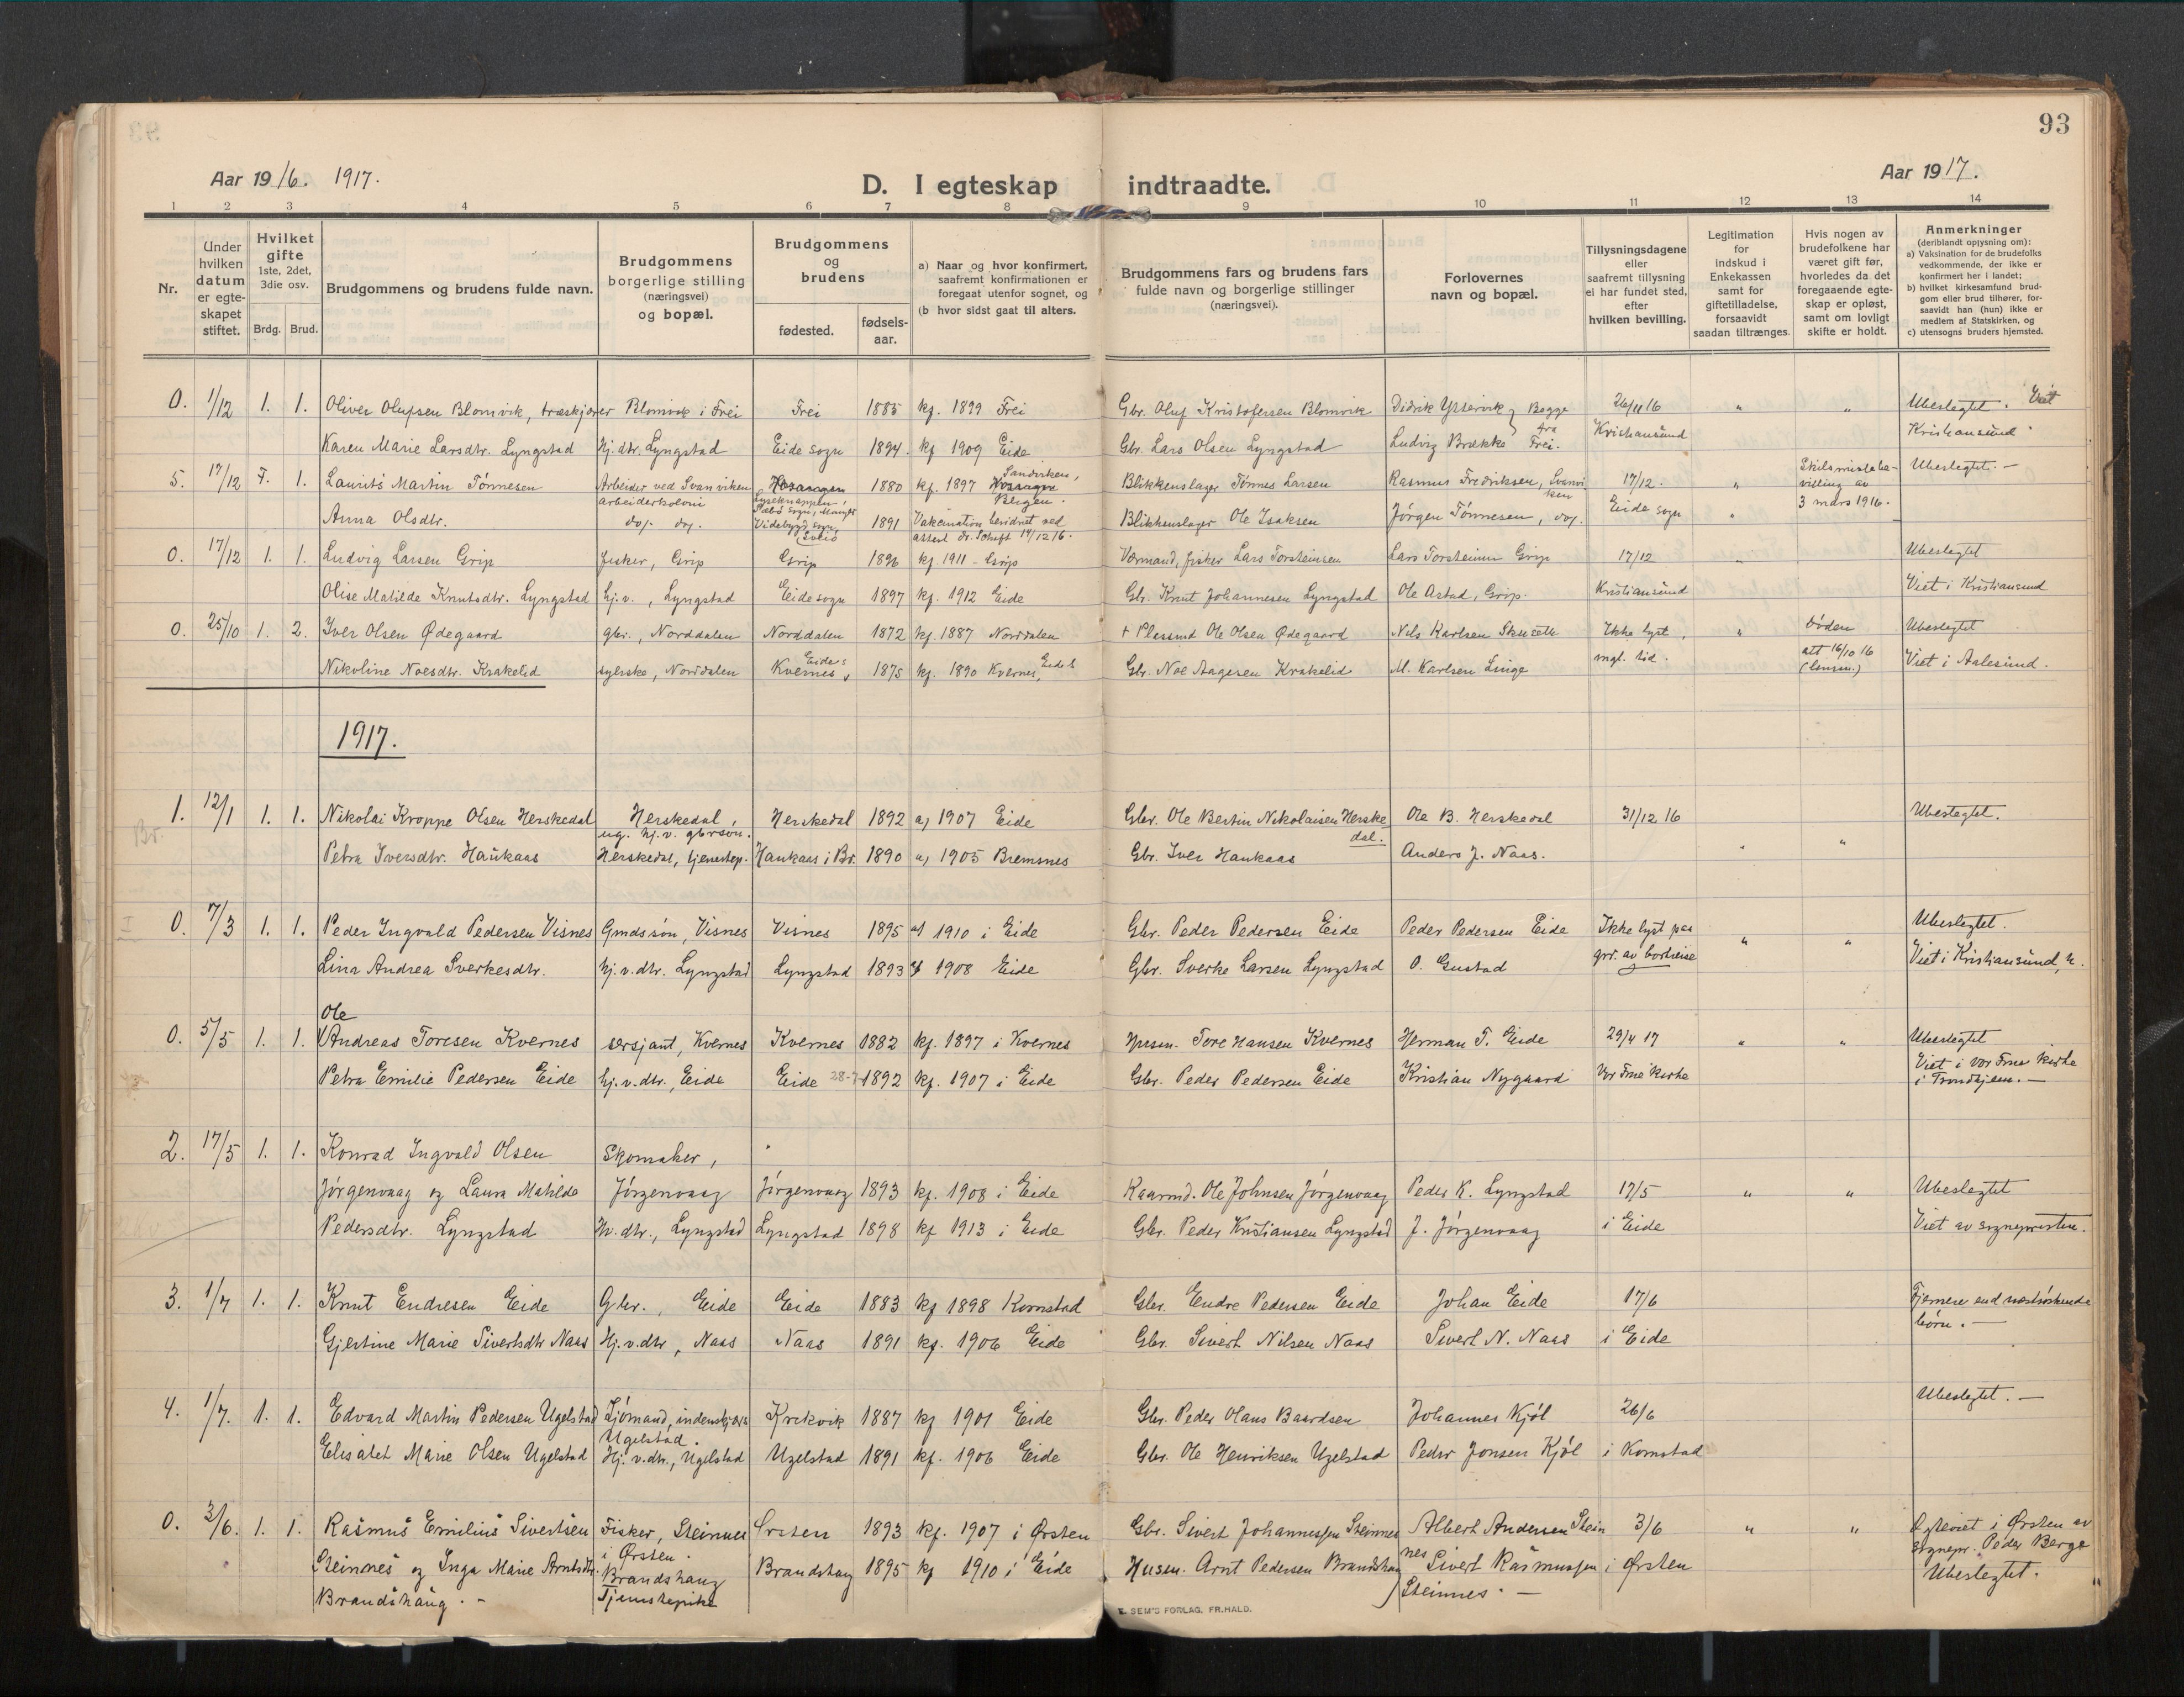 93
Aar 1916. 1917.
D. I egteskap indtraadte.
Aar 1917.
1 2 3 4 5 6 7 8 9 10 11 12 13 14
Nr.
Under hvilken datum er egteskapet stiftet.
Hvilket gifte 1ste, 2det, 3die osv.
Brdg. Brud.
Brudgommens og brudens fulde navn.
Brudgommens borgerlige stilling (næringsvei) og bopæl.
Brudgommens og brudens
fødested.
fødselsaar.
a) Naar og hvor konfirmert, saafremt konfirmationen er foregaat utenfor sognet, og
(b hvor sidst gaat til alters.
Brudgommens fars og brudens fars fulde navn og borgerlige stillinger (næringsvei).
Forlovernes navn og bopæl.
Tillysningsdagene eller saafremt tillysning ei har fundet sted, efter hvilken bevilling.
Legitimation for indskud i Enkekassen samt for giftetilladelse, forsaavidt saadan tiltrænges.
Hvis nogen av brudefolkene har været gift før, hvorledes da det foregaaende egteskap er opløst, samt om lovligt skifte er holdt.
Anmerkninger (deriblandt oplysning om):
a) Vaksination for de brudefolks vedkommende, der ikke er konfirmert her i landet;
b) hvilket kirkesamfund brudgom eller brud tilhører, forsaavidt han (hun) ikke er medlem af Statskirken, og
c) utensogns bruders hjemsted.
0. 1/12 1. 1. Oliver Olufsen Blomvik, træskjærer Blomvik i Frei Frei 1885 kf. 1899 Frei Gbr. Oluf Kristofersen Blomvik Didrik Ystervik Begge fra 26/11 16 " " Ubeslegtet. Viet
Karen Marie Larsdtr. Lyngstad hj.dtr. Lyngstad Eide sogn 1894. kf 1909 Eide Gbr. Lars Olsen Lyngstad Ludvig Brække Frei. Kristiansund Kristiansund.
5. 17/12 F. 1. Laurits Martin Tønnesen Arbeider ved Svanviken arbeiderkoloni 1880 kf. 1897 Sandviken, Bergen. Blikkenslager Tønnes Larsen Rasmus Fredriksen, Svanviken 17/12. Skilsmissebevilling av 3 mars 1916. Ubeslegtet. —
Anna Olsdtr. do. do. Videbygd sogn, 1891 Vakcination bevidnet ved attest dr. Schift 14/12 16. Blikkenslager Ole Isaksen Jørgen Tønnesen, do. Eide sogn "
0. 17/12 1. 1. Ludvig Larsen Grip fisker, Grip Grip 1896 kf 1911 - Grip Værmand, fisker Lars Torsteinsen Lars Torsteinsen Grip 17/12 " Ubeslegtet
Olise Matilde Knutsdtr. Lyngstad hj.v., Lyngstad Eide sogn 1897 kf. 1912 Eide Gbr. Knut Johannesen Lyngstad Ole Astad, Grip. Kristiansund Viet i Kristiansund
0. 25/10 1. 2. Iver Olsen Ødegaard gbr., Norddalen Norddalen 1872 kf. 1887 Norddalen + Ole Olsen Ødegaard Nils Karlsen Ikke lyst, " Ubeslegtet
Nikoline Noesdtr. Krakelid syerske, Norddalen Kvernes, Eide s 1875 kf. 1890 Kvernes, Eide s Gbr. Noe Aagesen Krakelid M. Karlsen Linge mgl. tid. att 16/10 16 Viet i Aalesund.
1917.
Br.
1. 12/1 1. 1. Nikolai Kroppe Olsen Herskedal Herskedal, ug. hj.v. gbrsøn. Herskedal 1892 a) 1907 Eide Gbr. Ole Bertin Nikolaisen Herskedal. Ole B. Herskedal 31/12 16 Ubeslegtet.
Petra Iversdtr. Haukaas Herskedal, tjenestep. Haukaas i Br. 1890 a) 1905 Bremsnes Gbr. Iver Haukaas Anders J. Naas. " "
0. 7/3 1. 1. Peder Ingvald Pedersen Visnes Gmdssøn, Visnes Visnes 1895 a) 1910 i Eide Gbr. Peder Pedersen Eide Peder Pedersen Eide Ikke lyst paa " " Ubeslegtet.
Lina Andrea Sverkesdtr. hj.v.dtr. Lyngstad Lyngstad 1893 1908 Eide Gbr. Sverke Larsen Lyngstad O. Gustad grr. av bortreise Viet i Kristiansund, N.
Ole
0. 5/5 1. 1. Andreas Toresen Kvernes sersjant, Kvernes Kvernes 1882 kf. 1897 i Kvernes Husm. Tore Hansen Kvernes Herman T. Eide 29/4 17 " " Ubeslegtet
Petra Emilie Pedersen Eide hj.v.dtr., Eide Eide 28-7 1892 kf. 1907 i Eide Gbr. Peder Pedersen Eide Kristian Nygaard Vor Frue kirke Viet i Vor Frue kirke i Trondhjem. —
2. 17/5 1. 1. Konrad Ingvald Olsen Skomaker,
Jørgenvaag og Laura Matilde Jørgenvaag Jørgenvaag 1893 kf. 1908 i Eide Kaarmd. Ole Johnsen Jørgenvaag Peder K. Lyngstad 17/5 " " Ubeslegtet
Pedersdtr. Lyngstad Hv.dtr., Lyngstad Lyngstad 1898 kf 1913 i Eide Gbr. Peder Kristiansen Lyngstad J. Jørgenvaag i Eide Viet av sognepresten.
3. 1/7 1. 1. Knut Endresen Eide Gbr., Eide Eide 1883 kf 1898 Kornstad Gbr. Endre Pedersen Eide Johan Eide 17/6 Fjernere end næstsøskendebørn. —
Gjertine Marie Sivertsdtr Naas Hj.v.dtr, Naas Naas 1891 kf. 1906 Eide Gbr. Sivert Nilsen Naas Sivert N. Naas i Eide
4. 1/7. 1. 1. Edvard Martin Pedersen Ugelstad Sjømand, indenskjærs Ugelstad Krekvik 1887 kf 1901 Eide Gbr. Peder Olaus Baardsen Johannes Kjøl 26/6 Ubeslegtet. —
Elisabet Marie Olsen Ugelstad Hj.v.dtr., Ugelstad Ugelstad 1891 kf. 1906 Eide Gbr. Ole Henriksen Ugelstad Peder Jonsen Kjøl i Kornstad
0. 3/6. 1. 1. Rasmus Emilius Sivertsen Fisker, Steinnes i Ørsten. Ørsten 1893 kf. 1907 i Ørsten Gbr. Sivert Johannessen Steinnes Albert Andersen Steinnes 3/6 " " Egteviet i Ørsten av sognepr. Peder Berge
Steinnes og Inga Marie Arntsdtr. Brandshaug Tjenestepike Brandshaug 1895 kf 1910 i Eide Husm. Arnt Pedersen Brandshaug Sivert Rasmussen Steinnes. — i Ørsten Ubeslegtet.
Brandshaug. -
E. SEM'S FORLAG, FR.HALD.